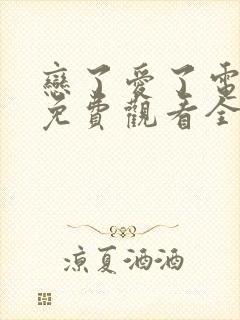 戀了愛了電
免費觀看全
涼夏酒酒